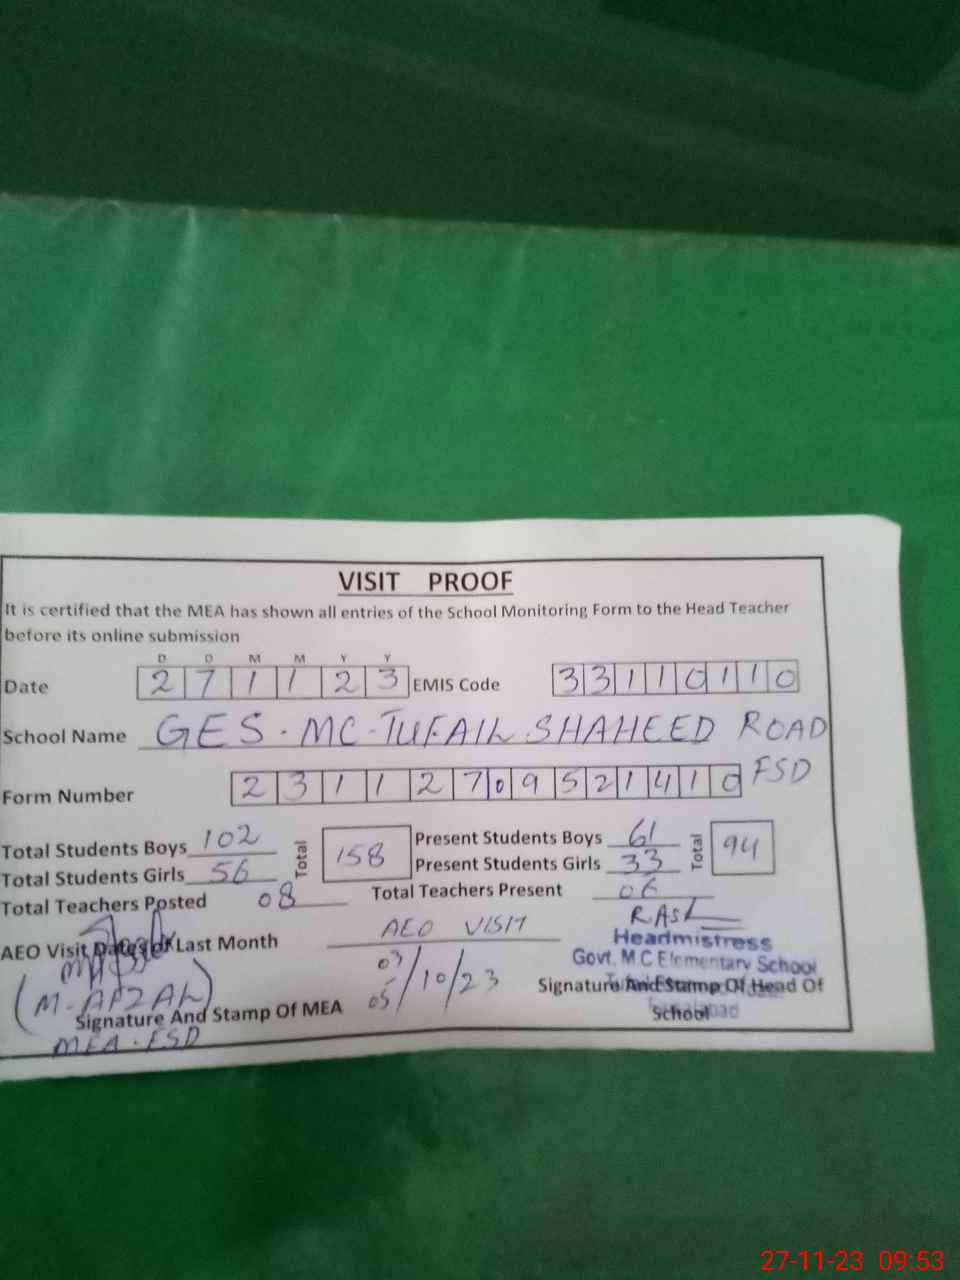 VISIT PROOF
It is certified that the MEA has shown all entries of the School Monitoring Form to the Head Teacher
before its online submission
D D M M Y Y
Date 2 7 1 1 2 3 EMIS Code 3 3 1 1 0 1 1 0
School Name GES. MC. TUFAIL. SHAHEED ROAD
FSD
Form Number 2 3 1 1 2 7 0 9 5 2 1 4 1 0
Total Students Boys 102 Total 158 Present Students Boys 61 Total 94
Total Students Girls 56 Present Students Girls 33
Total Teachers Posted 08 Total Teachers Present 06
AEO Visit Dates of Last Month AEO VISIT
Headmistress
Govt. M.C Elementary School
03/10/23
05
(M. AFZAL)
Signature And Stamp Of MEA
Signature And Stamp Of Head Of
School
MEA. FSD
27-11-23 09:53